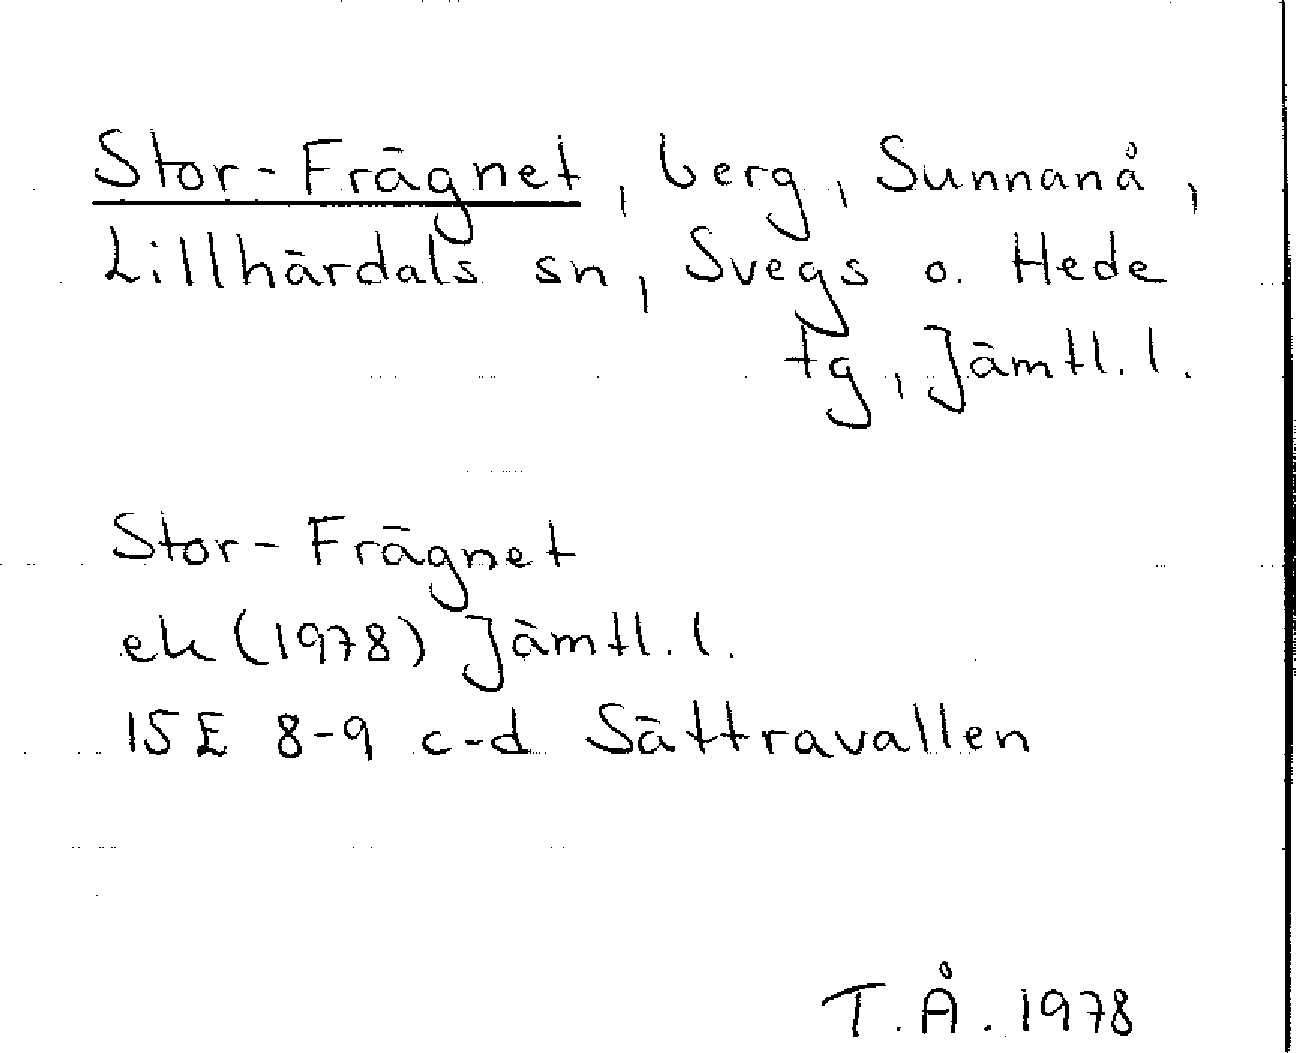 Stor-Frägnet, berg, Sunnanå,
Lillhärdals sn, Svegs o. Hede
tg, Jämtl. l.
Stor-Frägnet
ek (1978) Jämtl. l.
15E 8-9 c-d Sättravallen
T.Å. 1978